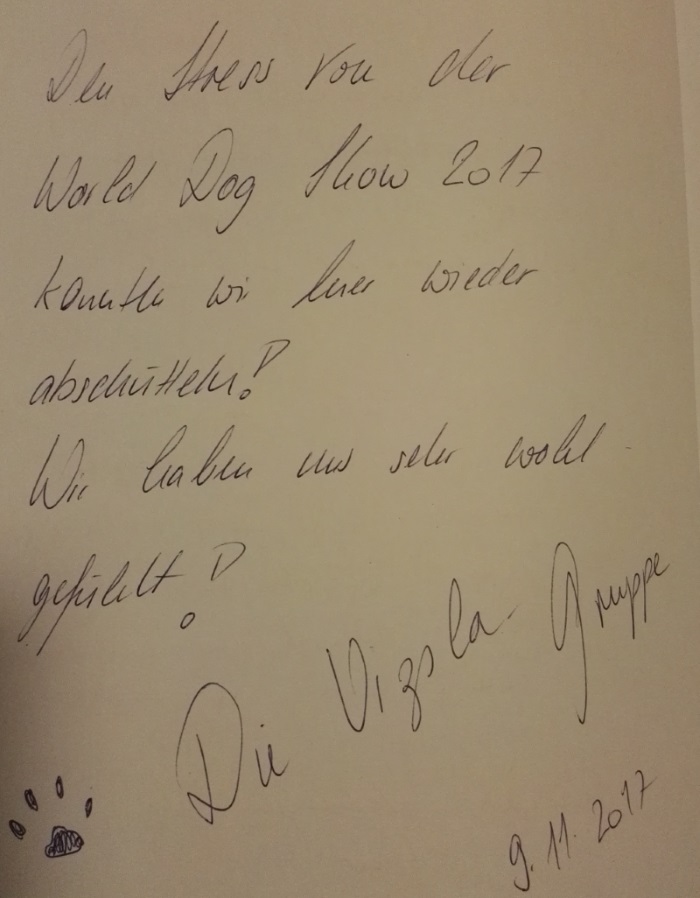 Den Stress von der
World Dog Show 2017
konnten wir hier wieder
abschütteln!
Wir haben uns sehr wohl-
gefühlt!
Die Vizsla-Gruppe
9.11.2017